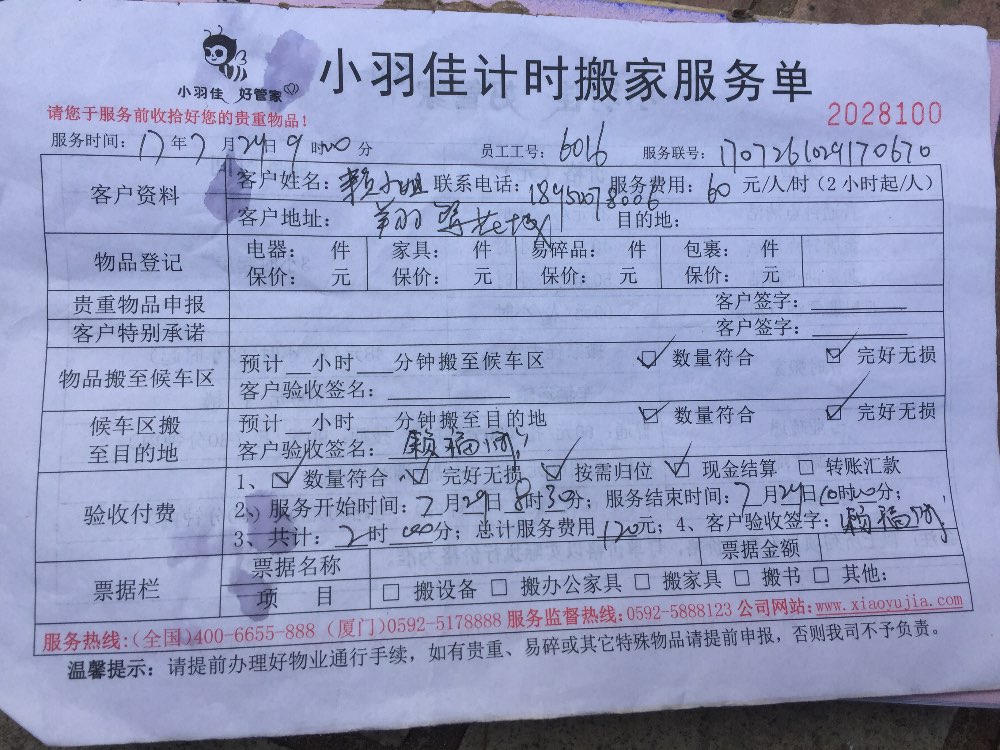 小羽佳 好管家
小羽佳计时搬家服务单
请您于服务前收拾好您的贵重物品！
2028100
服务时间：17年7月29日9时00分 员工工号：6016 服务联号：1707261029170670
客户资料 客户姓名：赖小姐 联系电话：18950078006 服务费用：60元/人/时（2小时起/人）
客户地址： 目的地：
物品登记 电器： 件 家具： 件 易碎品： 件 包裹： 件
保价： 元 保价： 元 保价： 元 保价： 元
贵重物品申报 客户签字：
客户特别承诺 客户签字：
物品搬至候车区 预计 小时 分钟搬至候车区 数量符合 完好无损
客户验收签名：
候车区搬至目的地 预计 小时 分钟搬至目的地 数量符合 完好无损
客户验收签名：赖福
验收付费 1、 数量符合 完好无损 按需归位 现金结算 转账汇款
2、服务开始时间：7月29日8时30分；服务结束时间：7月29日10时00分；
3、共计：2时00分；总计服务费用120元；4、客户验收签字：赖福
票据栏 票据名称 票据金额
项 目 搬设备 搬办公家具 搬家具 搬书 其他：
服务热线：（全国）400-6655-888（厦门）0592-5178888 服务监督热线：0592-5888123 公司网站：www.xiaoyujia.com
温馨提示：请提前办理好物业通行手续，如有贵重、易碎或其它特殊物品请提前申报，否则我司不予负责。